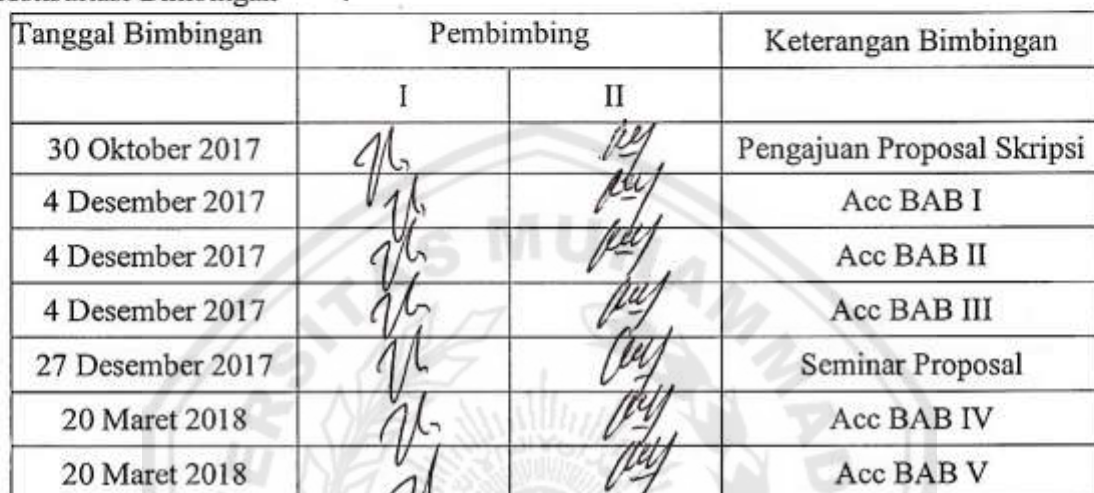 Tanggal Bimbingan Pembimbing Keterangan Bimbingan
I II
30 Oktober 2017 Pengajuan Proposal Skripsi
4 Desember 2017 Acc BAB I
4 Desember 2017 Acc BAB II
4 Desember 2017 Acc BAB III
27 Desember 2017 Seminar Proposal
20 Maret 2018 Acc BAB IV
20 Maret 2018 Acc BAB V